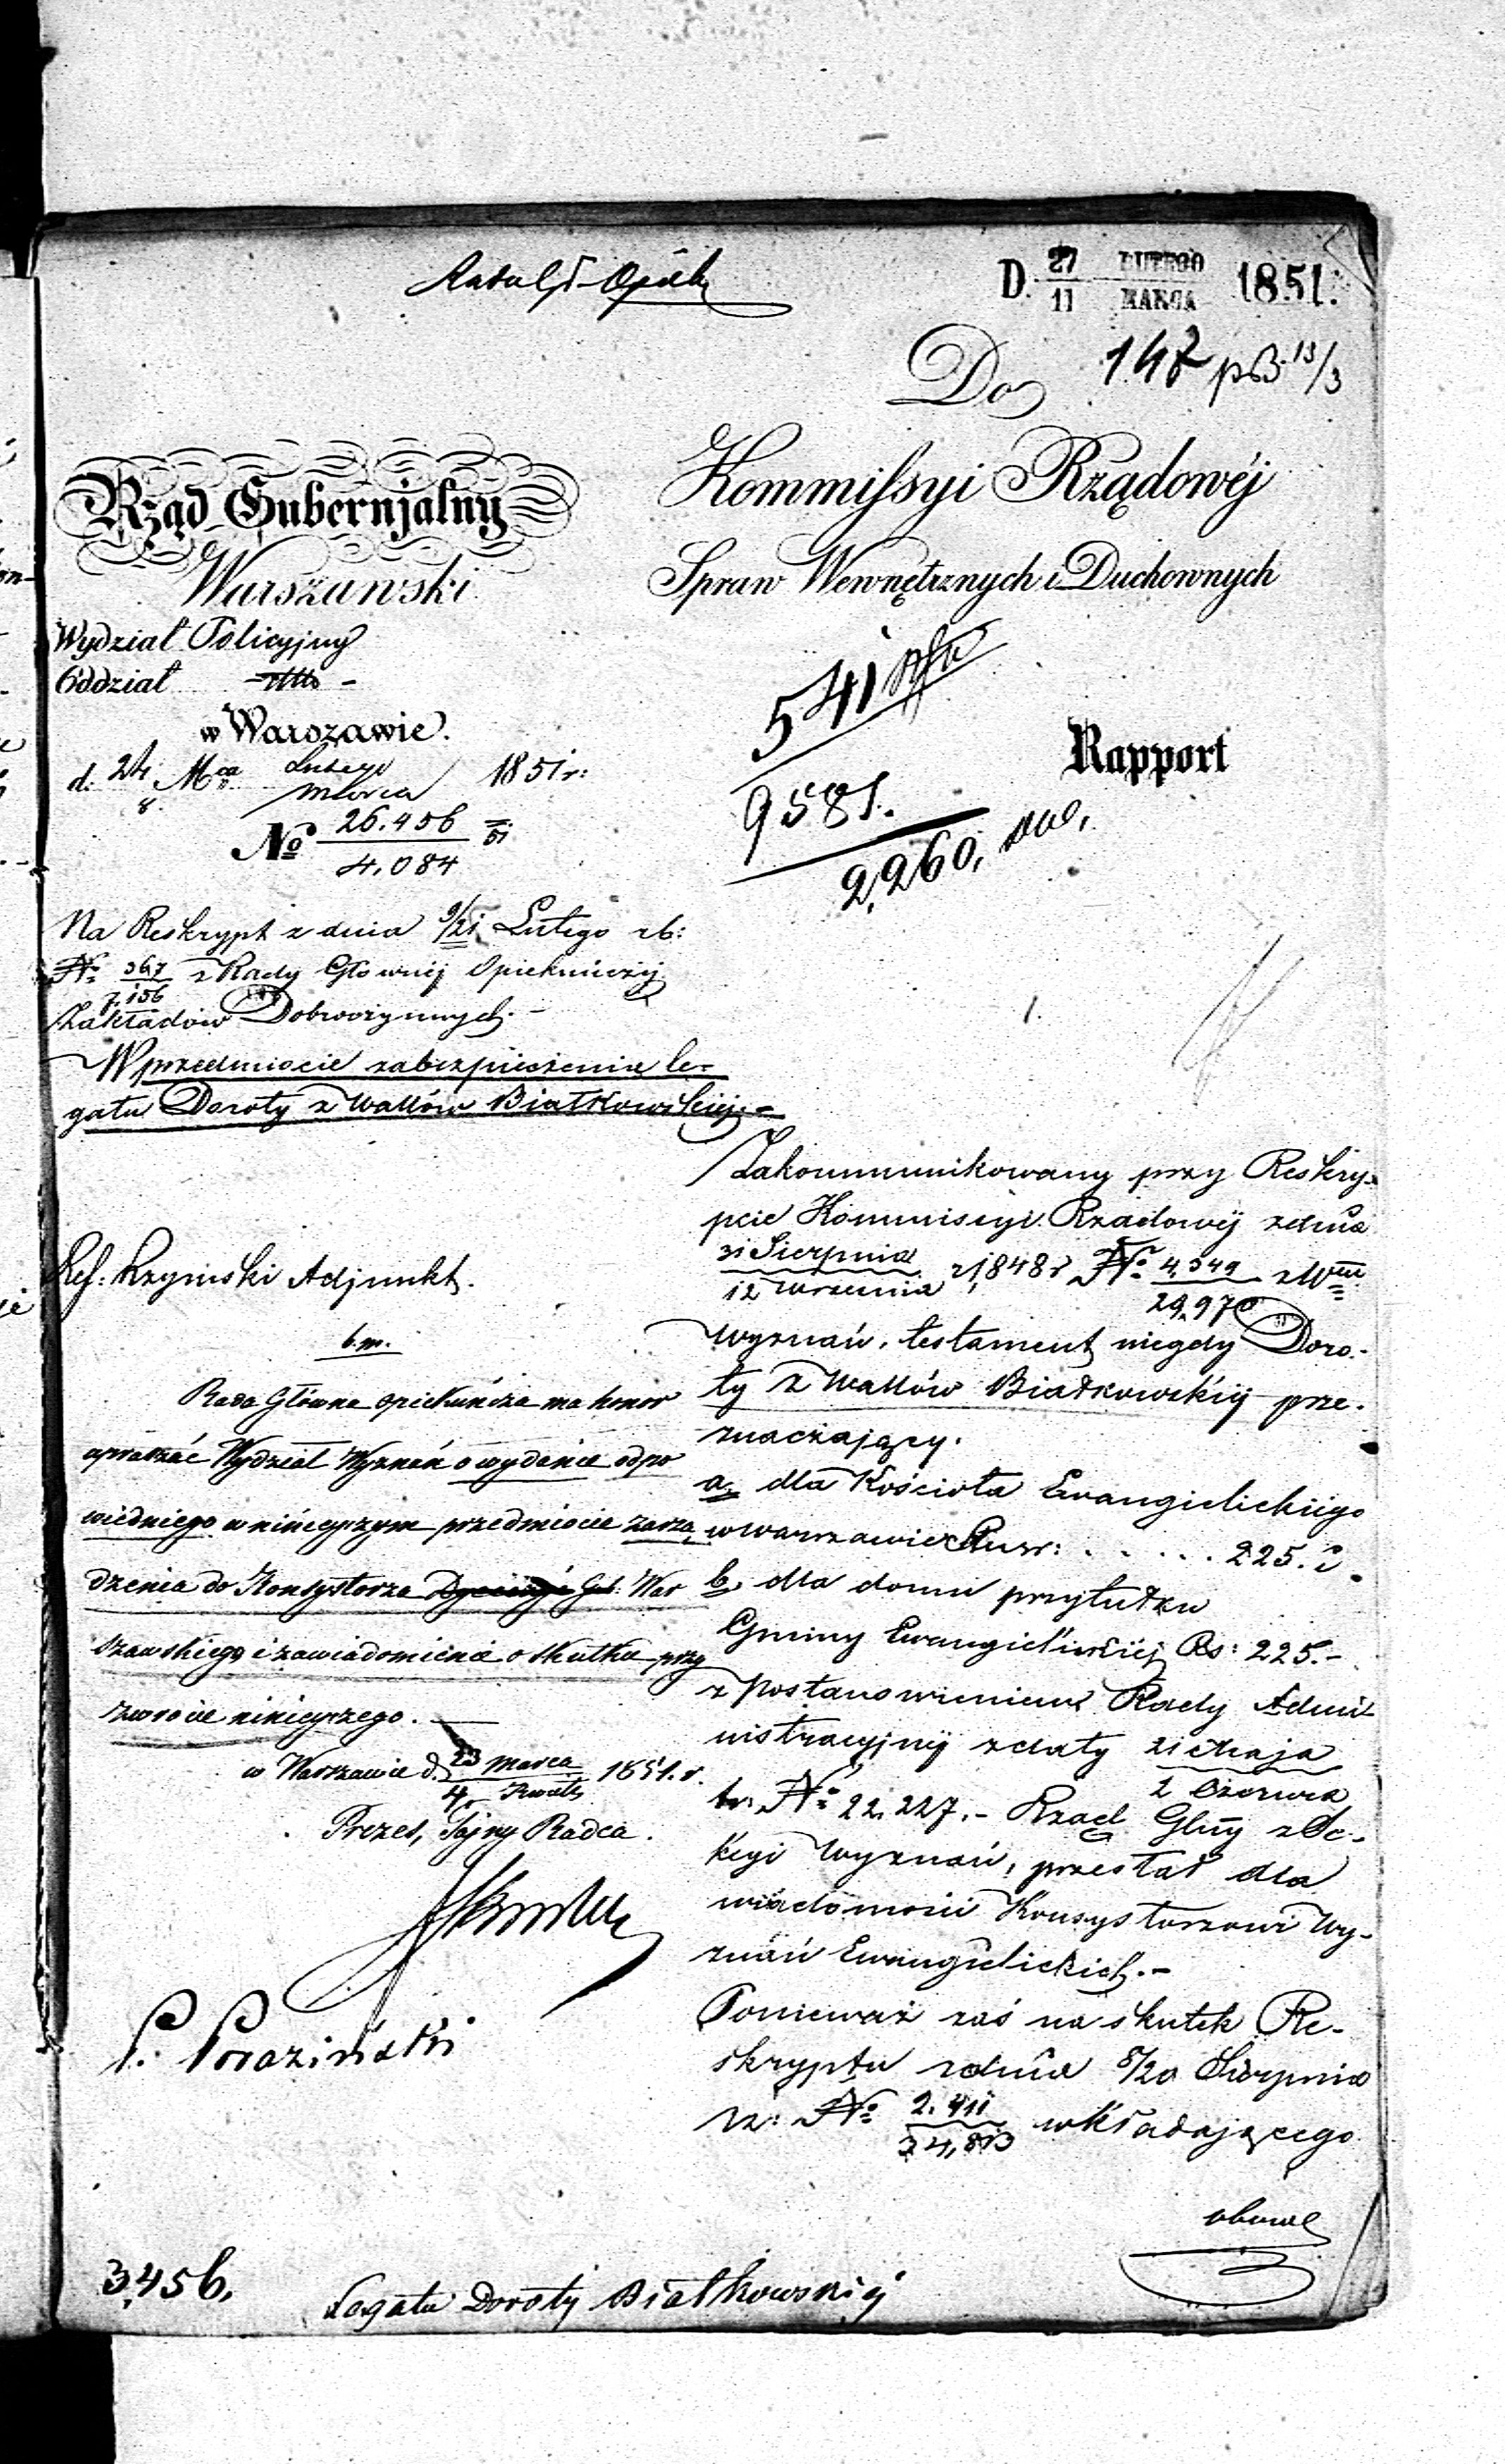 D. 27/11 LUTEGO/MARCA 1851.
Do 147
13/3
Kommissyi Rządowéj
Spraw Wewnętrznych i Duchownych
Rząd Gubernjalny
Warszawski
Wydział Policyjny
Oddział
w Warszawie.
d. 24/8 Mca Lutego/Marca 1851 r:
No 26.456/4.084
541
9581.
2,260,
Rapport
Na Reskrypt z dnia 9/21 Lutego rb:
No 367/7.156 z Rady Głownéj Opiekuńczéj
Zakładów Dobroczynnych. -
W przedmiocie zabezpieczenia le-
gatu Doroty z Wallów Białkowskiej. -
Ref: Adjunkt.
b.m.
Rada Główna Opiekuńcza ma honor
upraszać Wydział Wyznań o wydanie odpo
wiedniego w niniejszym przedmiocie zarzą
dzenia do Konsystorza War
szawskiego i zawiadomienie o skutku przy
zwrocie niniejszego.
w Warszawie d. 23 Marca/4 Kwiet. 1851. r.
Prezes, Tajny Radca.
Zakommunikowany przy Reskry-
pcie Kommissyi Rządowéj z dnia
31 Sierpnia/12 Września 1848 r No 4,549/29,970 z Włu
Wyznań, testament niegdy Doro-
ty z Wallów Białkowskiéj prze-
znaczający.
a, dla Kościoła Ewangielickiego
w Warszawie Rusr: . . . . . 225. i
b, dla domu przytułku
Gminy Ewangielickiéj Rs: 225.-
z Postanowieniem Rady Admi-
nistracyjnéj z daty 21 Maja/2 Czerwca
tr. No 22.227.- Rząd Glny z Se-
kcyi Wyznań, przesłał dla
wiadomości Konsystorzowi Wy-
znań Ewangielickich. -
Ponieważ zaś na skutek Re-
skryptu z dnia 8/20 Sierpnia
rz: No 2.411/34,813 wkładającego
3,456.
Legatu Doroty Białkowskiéj